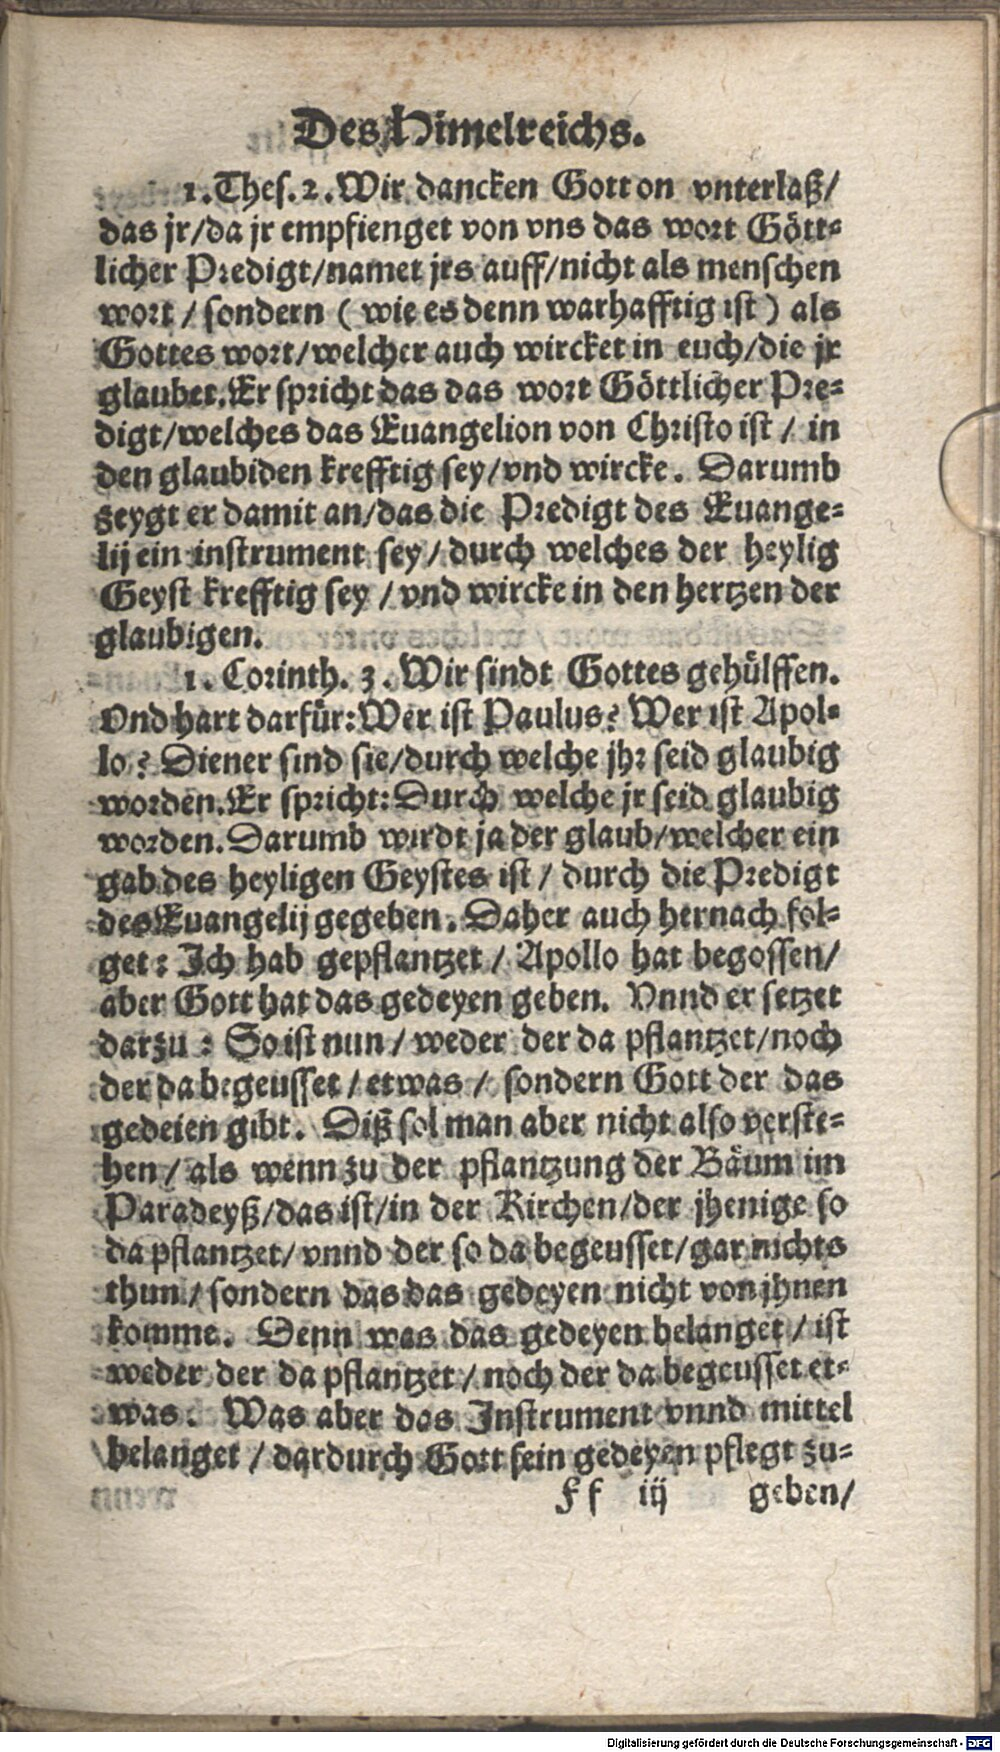 Des Himelreichs.
1. Thes. 2. Wir dancken Gott on vnterlaß/
das jr/da jr empfienget von vns das wort Gött-
licher Predigt/namet jrs auff/nicht als menschen
wort / sondern ( wie es denn warhafftig ist ) als
Gottes wort/welcher auch wircket in euch/die jr
glaubet. Er spricht das das wort Göttlicher Pre-
digt/welches das Euangelion von Christo ist / in
den glaubiden krefftig sey/vnd wircke. Darumb
zeygt er damit an/das die Predigt des Euange-
lij ein instrument sey / durch welches der heylig
Geyst krefftig sey / vnd wircke in den hertzen der
glaubigen.
1. Corinth. 3. Wir sindt Gottes gehülffen.
Vnd hart darfür: Wer ist Paulus? Wer ist Apol-
lo? Diener sind sie/durch welche jhr seid glaubig
worden. Er spricht: Durch welche jr seid glaubig
worden. Darumb wirdt ja der glaub/welcher ein
gab des heyligen Geystes ist / durch die Predigt
des Euangelij gegeben. Daher auch hernach fol-
get: Ich hab gepflantzet / Apollo hat begossen/
aber Gott hat das gedeyen geben. Vnnd er setzet
darzu : So ist nun / weder der da pflantzet/noch
der da begeusset / etwas / sondern Gott der das
gedeien gibt. Diß sol man aber nicht also verste-
hen / als wenn zu der pflantzung der Bäum im
Paradeyß/das ist/in der Kirchen/der jhenige so
da pflantzet/ vnnd der so da begeusset/gar nichts
thun / sondern das das gedeyen nicht von jhnen
komme. Denn was das gedeyen belanget / ist
weder der da pflantzet / noch der da begeusset et-
was. Was aber das Instrument vnnd mittel
belanget / dardurch Gott sein gedeyen pflegt zu-
Ff iij geben/
Digitalisierung gefördert durch die Deutsche Forschungsgemeinschaft - DFG